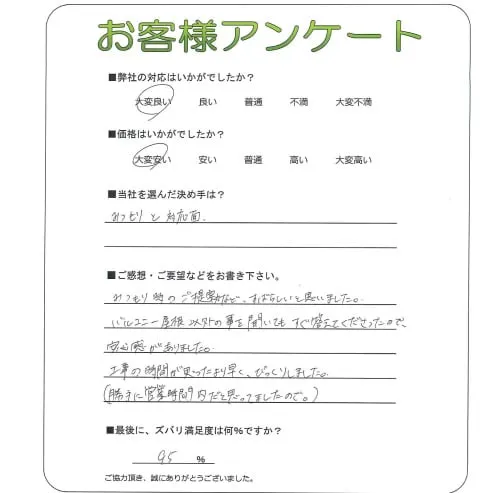 お客様アンケート
■弊社の対応はいかがでしたか？
大変良い 良い 普通 不満 大変不満
■価格はいかがでしたか？
大変安い 安い 普通 高い 大変高い
■当社を選んだ決め手は？
みつもりと対応面。
■ご感想・ご要望などをお書き下さい。
みつもり時のご提案など、すばらしいと思いました。
バルコニー屋根以外の事を聞いてもすぐ答えてくださったので、
安心感がありました。
工事の時間が思ったより早く、びっくりしました。
(勝手に営業時間内だと思ってましたので。)
■最後に、ズバリ満足度は何％ですか？
95 ％
ご協力頂き、誠にありがとうございました。